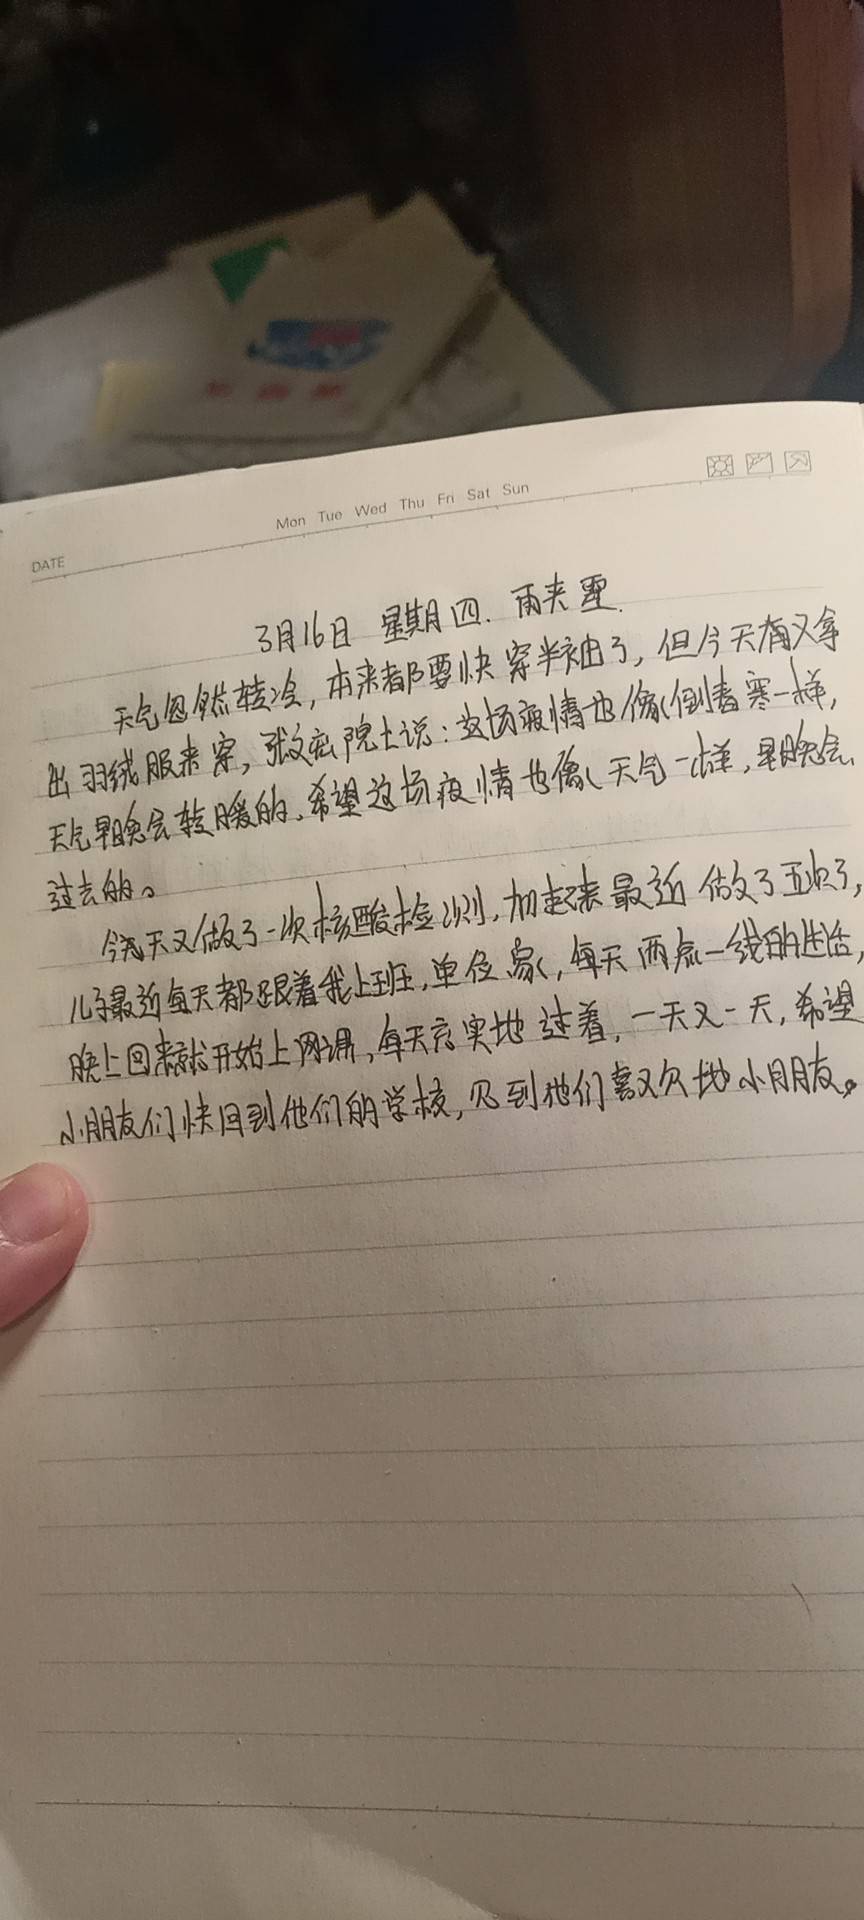 Mon Tue Wed Thu Fri Sat Sun
DATE
3月16日 星期四. 雨夹雪.
天气忽然转冷,本来都要快穿半袖了,但今天有又拿
出羽绒服来穿,张文宏院士说:这场疫情也像倒春寒一样,
天气早晚会转暖的,希望这场疫情也像天气一样,早晚会
过去的。
今天又做了一次核酸检测,加起来最近做了五次了,
儿子最近每天都跟着我上班,单位、家,每天两点一线的生活,
晚上回来就开始上网课,每天充实地过着,一天又一天,希望
小朋友们快回到他们的学校,见到他们喜欢地小朋友。